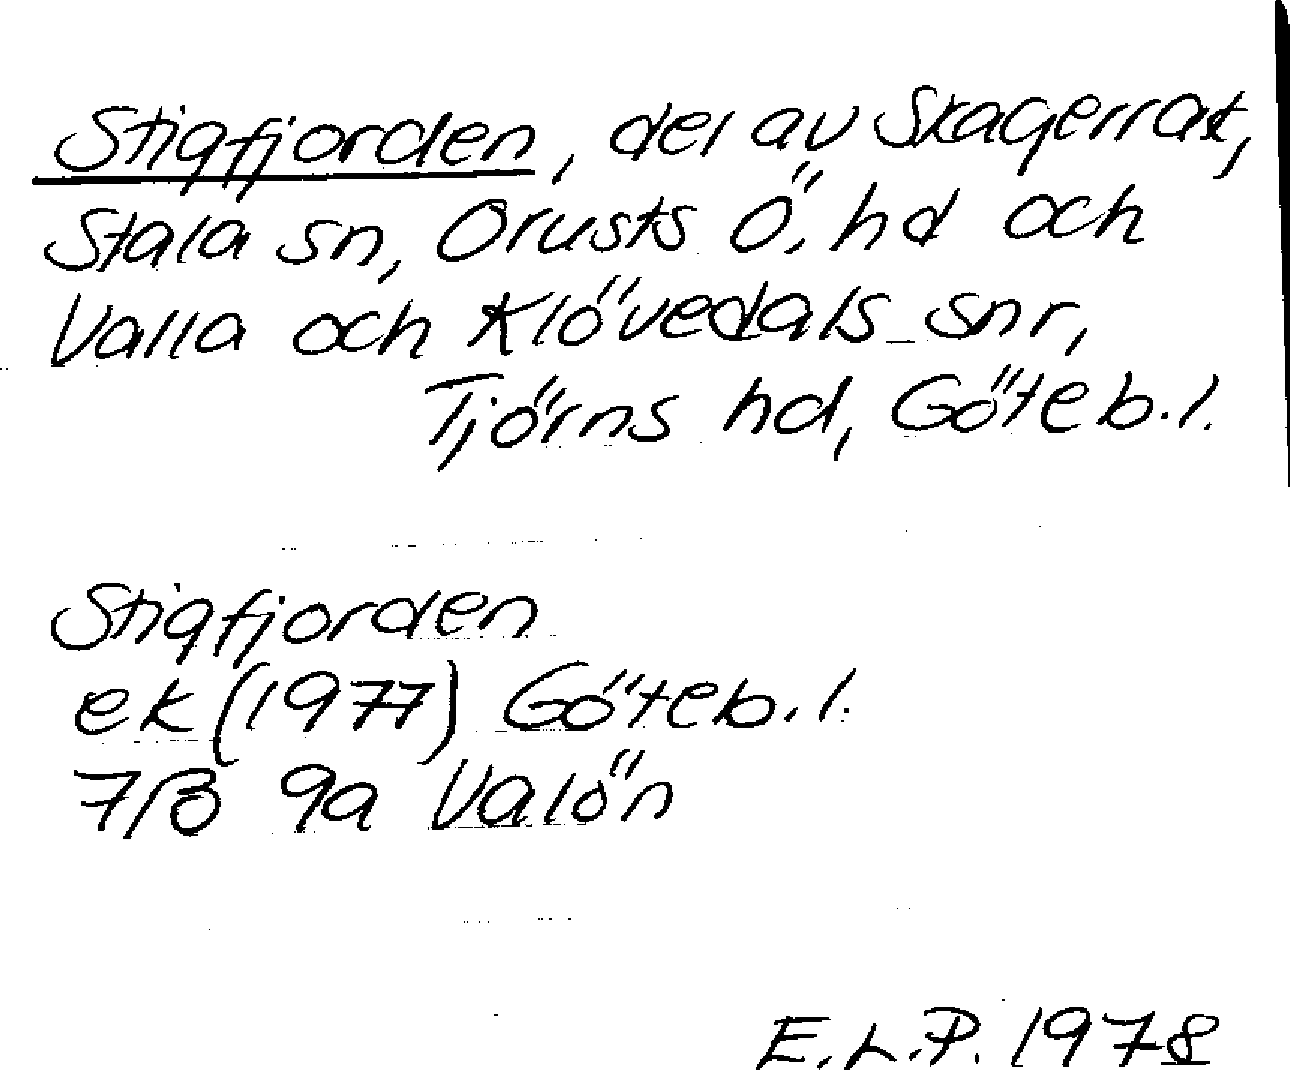 Stigfjorden, del av Skagerrak,
Stala sn, Orusts Ö. hd och
Valla och Klövedals snr,
Tjörns hd, Göteb. l.
Stigfjorden
ek (1977) Göteb. l.
7/B 9a Valön
E.L.P. 1978